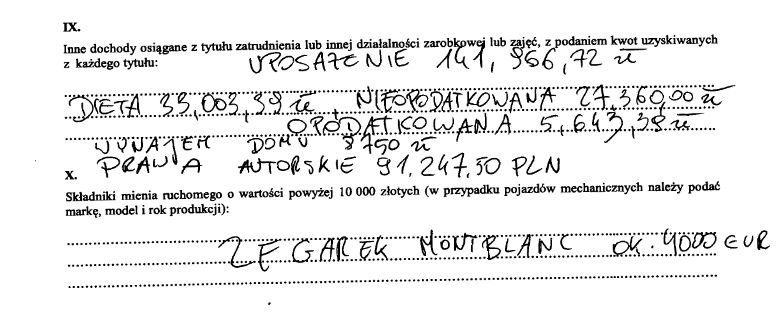 IX.
Inne dochody osiągane z tytułu zatrudnienia lub innej działalności zarobkowej lub zajęć, z podaniem kwot uzyskiwanych
z każdego tytułu: UPOSAŻENIE 141,966,72 zł
DIETA 33,003,39 zł, NIEOPODATKOWANA 27,360,00 zł
OPODATKOWANA 5,643,39 zł
WYNAJEM DOMU 8750 zł
PRAWA AUTORSKIE 91,247,50 PLN
X.
Składniki mienia ruchomego o wartości powyżej 10 000 złotych (w przypadku pojazdów mechanicznych należy podać
markę, model i rok produkcji):
ZEGAREK MONTBLANC OK. 4000 EUR